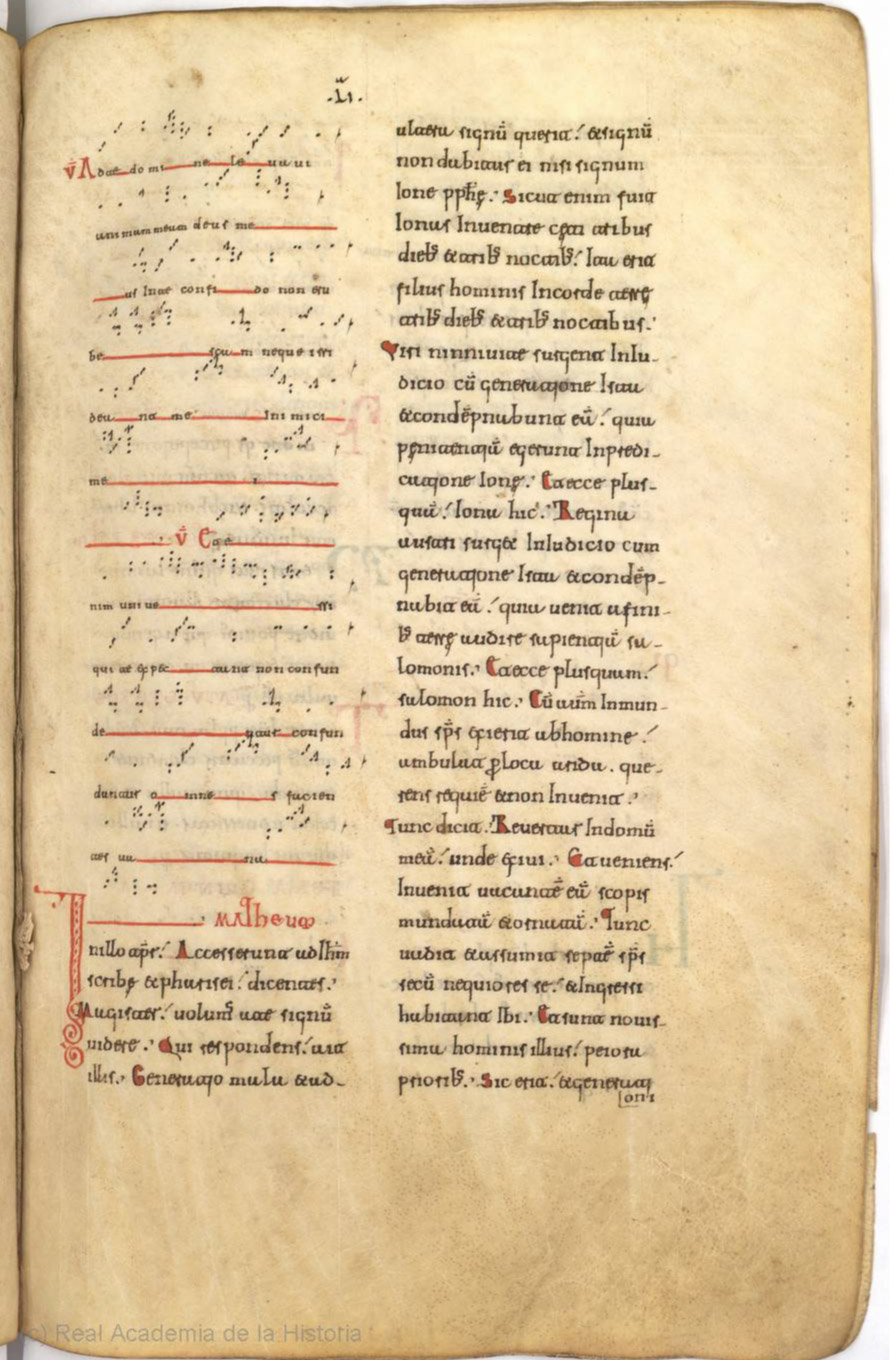 .LI.
V̄ Ad te domine leuaui
animam meam deus me
us In te confido non eru
bescam neque irri
deant me Inimici
me i
V̄ Et e
nim uniue rsi
qui te expectant non confun
de ntur confun
dantur omnes facien
tes uana
Matheum
Inillo tp̄r: Accesserunt ad Ihm̄
scribę & pharisei: dicentes.
Magister: uolum̄ a te signū
uidere. Qui respondens: ait
illis. Generatio mala & ad-
ultera signū querit: & signū
non dabitur ei nisi signum
Ione pphę. Sicut enim fuit
Ionas Inuentre cęti tribus
dieb; & trib; noctib;: Ita erit
filius hominis Incorde terrę
trib; dieb; & trib; noctibus.
Viri niniuite surgent Iniu-
dicio cū generatione Ista
& condēpnabunt eā: quia
pęnitentiā egerunt Inpredi-
catione Ionę. Et ecce plus-
quā: Iona hic. Regina
austri surget Iniudicio cum
generatione Ista & condēp-
nabit eā: quia uenit afini-
b; terrę audire sapientiā sa-
lomonis. Et ecce plusquam:
salomon hic. Cū autm̄ Inmun-
dus sp̄s exierit abhomine:
ambulat ꝑloca arida. que-
rens requiē & non Inuenit.
Tunc dicit. Reuertar Indomū
meā: unde exiui. Et ueniens:
Inuenit uacantē eā scopis
mundatā & ornatā. Tunc
uadit & assumit septē sp̄s
secū nequiores se: & Ingressi
habitant Ibi. Et sunt nouis-
sima hominis illius: peiora
priorib;. Sic erit: & generati
oni
(c) Real Academia de la Historia